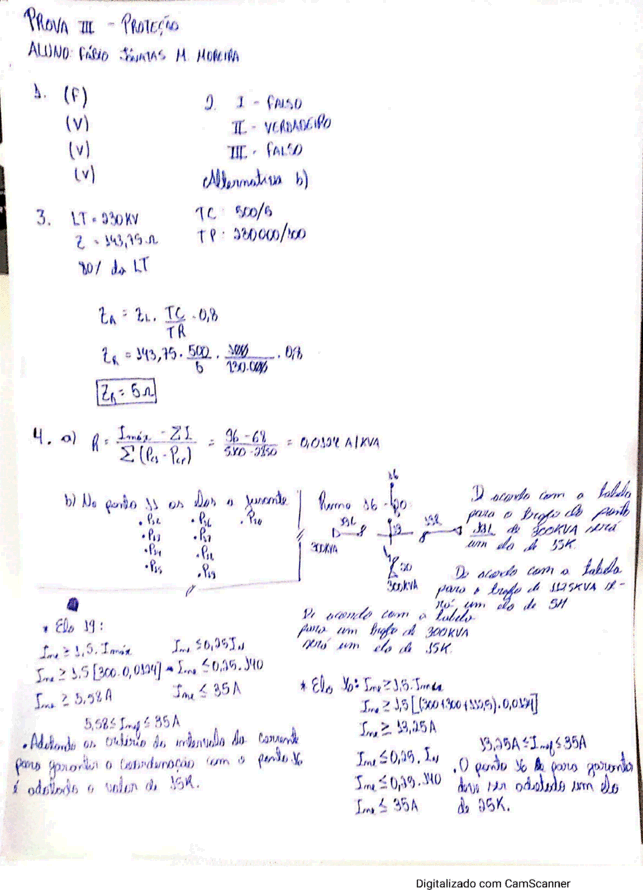 PROVA III - PROTEÇÃO
ALUNO: FÁBIO JÔNATAS M. MOREIRA
1. (F)
(V)
(V)
(V)
2. I - FALSO
II - VERDADEIRO
III - FALSO
Alternativa b)
3. LT = 230 KV
Z = 143,75 Ω
80% da LT
TC: 500/5
TP: 230000/100
ZR = ZL . TC/TR . 0,8
ZR = 143,75 . 500/5 . 100/230.000 . 0,8
ZR = 5 Ω
4. a) R = Imáx - ΣI / Σ(Pcs - Pcr) = 96 - 68 / = 0,0124 A/KVA
b) No ponto 11 os elos a jusante
• P12 • P16 • P20
• P13 • P17
• P14 • P18
• P15 • P19
Ramo 16 - 20
16
191 19 192
300KVA
20
300KVA
De acordo com a tabela
para o trafo do ponto
191 de 300KVA será
um elo de 15K.
De acordo com a tabela
para o trafo de 112,5KVA
rá um elo de 5H
De acordo com a tabela
para um trafo de 300KVA
será um elo de 15K.
* Elo 19:
Ime ≥ 1,5. Imáx Ime ≤ 0,25 IN
Ime ≥ 1,5 [300. 0,0124] Ime ≤ 0,25. 140
Ime ≥ 5,58A Ime ≤ 35A
5,58 ≤ Ime ≤ 35A
• Adotando os critério do intervalo da corrente
para garantir a coordenação com o ponto 16
é adotado o valor de 15K.
* Elo 16: Ime ≥ 1,5. Imáx
Ime ≥ 1,5 [(300+300+112,5). 0,0124]
Ime ≥ 13,25A
Ime ≤ 0,25. IN
Ime ≤ 0,25. 140
Ime ≤ 35A
13,25A ≤ Ime ≤ 35A
. O ponto 16 para garantir
deve ser adotado um elo
de 25K.
Digitalizado com CamScanner